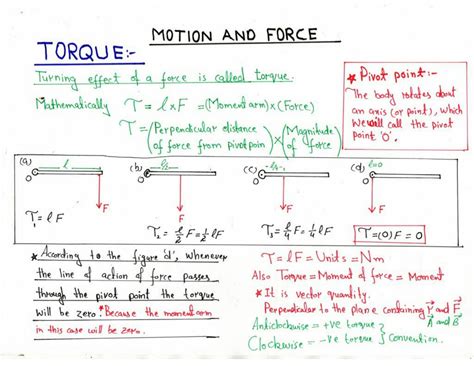 MOTION AND FORCE
TORQUE:-
Turning effect of a force is called torque.
Mathematically τ = l×F = (Moment arm)×(Force)
τ = (Perpendicular distance of force from pivot point) × (Magnitude of force)
* Pivot point:-
The body rotates about
an axis (or point), which
we will call the pivot
point 'O'.
(a) l O F
τ₁ = lF
(b) l/2 O F
τ₂ = l/2 F = 1/2 lF
(c) l/4 O F
τ₃ = l/4 F = 1/4 lF
(d) l=0 O F
τ = (0)F = 0
* According to the figure 'd', whenever
the line of action of force passes
through the pivot point the torque
will be zero. *Because the moment arm
in this case will be zero.
τ = lF = Units = Nm
Also Torque = Moment of force = Moment
* It is vector quantity.
Perpendicular to the plane containing r⃗ and F⃗
A⃗ and B⃗
Anticlockwise = +ve torque
Clockwise = -ve torque } Convention.